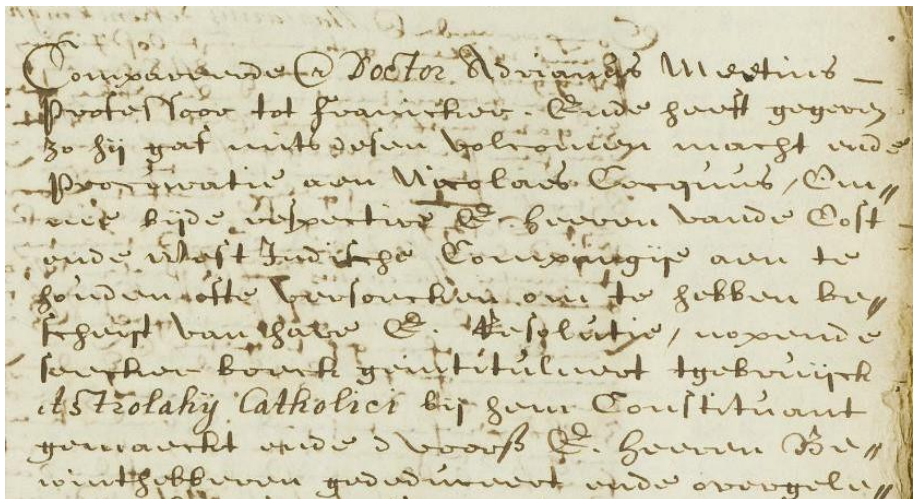 Compareerde d' Doctor Adrianus Meetius
Professoor tot franicker. Ende heeft gegeven
zo hij gaf mits desen volcomen macht ende
Procuratie aen Nicolaes Cocquius, Om//
me bijde respective E. heeren vande Oost
ende West Indische Compangije aen te
houden ofte versoecken om te hebben be//
scheijt van hare E. Resolutie, nopende
seecker boeck geintituleert tgebruijck
Astrolabij Catholici bij hem Constituant
gemaeckt ende d voorß E. heeren Be//
winthebberen gededuceert ende overgele//